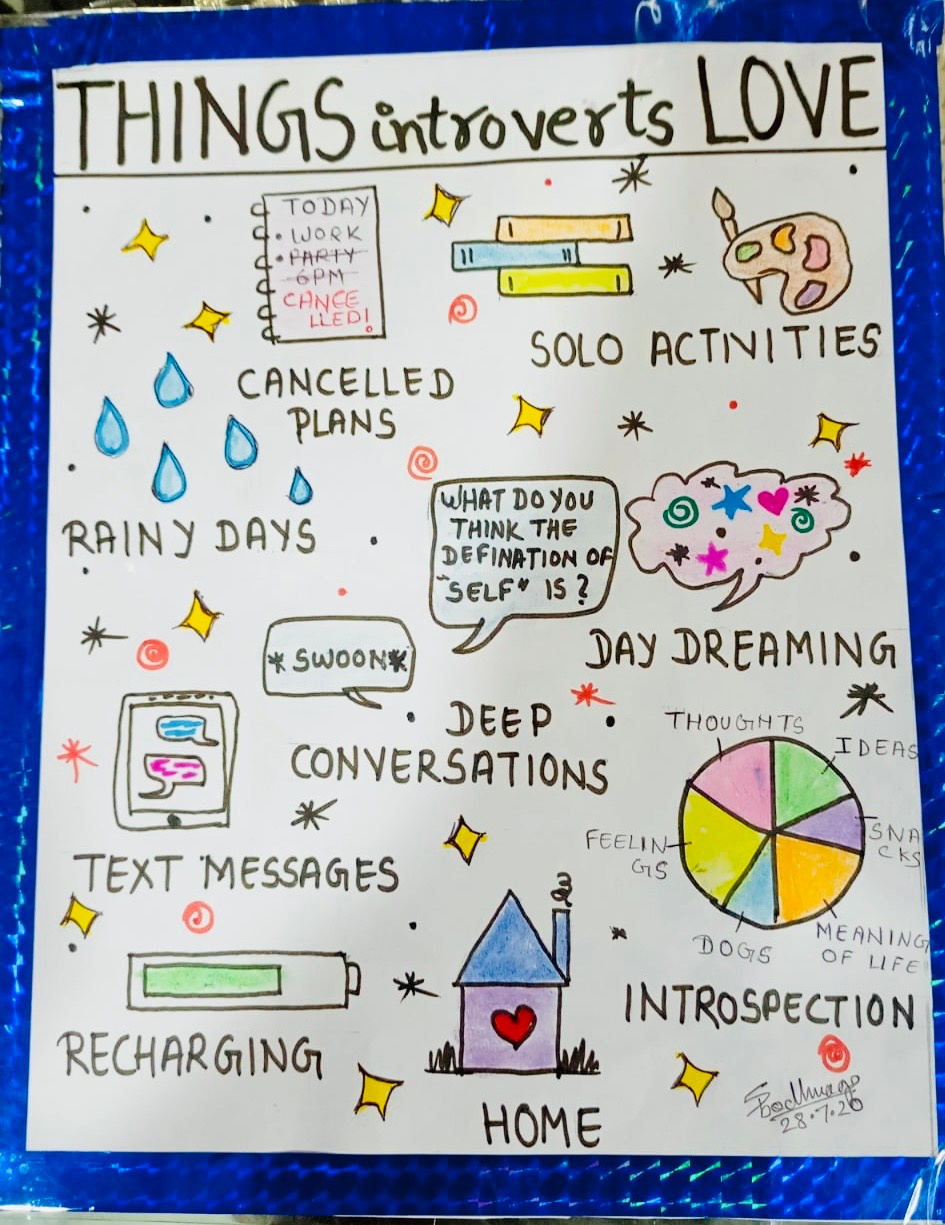 THINGS introverts LOVE
TODAY
• WORK
• PARTY
6PM
CANCE
LLED!
CANCELLED
PLANS
SOLO ACTIVITIES
RAINY DAYS
WHAT DO YOU
THINK THE
DEFINATION OF
"SELF" IS?
DAY DREAMING
*SWOON*
DEEP
CONVERSATIONS
TEXT MESSAGES
THOUGHTS
IDEAS
SNA
CKS
FEELIN
GS
DOGS
MEANING
OF LIFE
INTROSPECTION
RECHARGING
HOME
28.7.20